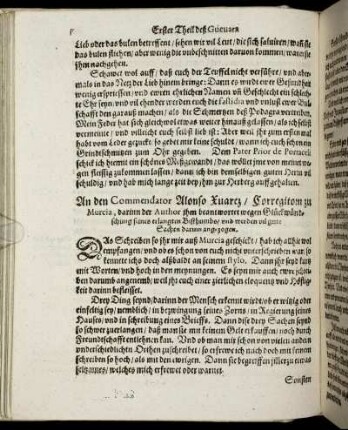 Erster Theil deß Gueuara
Lieb oder das bulen betreffent / sehen wir vil Leut / die sich saluiren / wañ sie
das bulen fliehen / aber wenig die unbeschnitten daruon kommen / wann sie
ihm nachgehen.
Schawet wol auff / daß euch der Teuffel nicht verführe / und aber-
mals in das Netz der Lieb hinein bringe: Dann es wurdt ewer Gesundheit
wenig ersprießen / und ewern ehrlichen Namen uñ Geschlecht ein schlech-
te Ehr seyn / und vil ehender werden euch die lasciuia und unlust ewer Bul-
schafft den garauß machen / als die Schmertzen deß Podagra
Mein Feder hat sich gleichwol etwas weiters hinauß gelassen / als ich selbst
vermeinte / und villeicht euch selbst lieb ist: Aber weil ihr zum ersten mal
habt vom Leder gezuckt / so gebet mir keine schuldt / wann ich euch
zum Ohr gegeben. Dem Pater Prior de
schick ich hiemit ein schönes Meßgewandt / das wöllet jme von meinet wegen
fleissig zukommen lassen / dann ich bin demselben guten Herrn vil
schuldig / und hab mich lange zeit bey ihm zur Herberg auffgehalten.
An den Commendator Alonso Xuarez / Corregitorn zu
Murcia, darinn der Author ihm beantwortet wegen Glückwünt-
schung seines erlangten Bisthumbs und werden vil gute
Sachen darinn angezogen.
DAs Schreiben so ihr mir auß Murcia geschickt / hab ich allhie wol
empfangen / und ob es schon von euch nicht unterschrieben war / so
kennete ichs doch alsbaldt an seinem stylo. Dann ihr seyd kurtz
mit Worten / und hoch in den meynungen. Es seyn mir auch ewr schrei-
ben darumb angenemb / weil ihr euch einer zierlichen eloquentz und Höf-
ligkeit darinn befleisset.
Drey Ding seynd / darinn der Mensch erkennt wirdt / ob er witzig oder
einfeltig sey / nemblich / in bezwingung seines Zorns / in Regierung seines
Hauses / und in schreibung eines Brieffs. Dann dise drey Sachen seynd
so schwer zuerlangen / daß man sie mit keinem Gelt erkauffen / noch durch
Freundtschafft entlehnen kan. Und ob man mir schon von vielen andern
underschiedlichen Orthen zuschreibet / so erfrewe ich mich doch mit keinem
schreiben so hoch / als mit den ewrigen. Dann sie begreiffen jederzeit etwas
seltzames / welches mich erfrewt oder warnet.
Sonsten